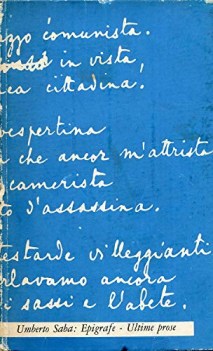 zzo comunista.
in vista,
ca cittadina.
vespertina
che ancor m'attrista
camerista
o d'assassina.
testarde villeggianti
rlavamo ancora
i sassi e l'abete.
Umberto Saba: Epigrafe - Ultime prose